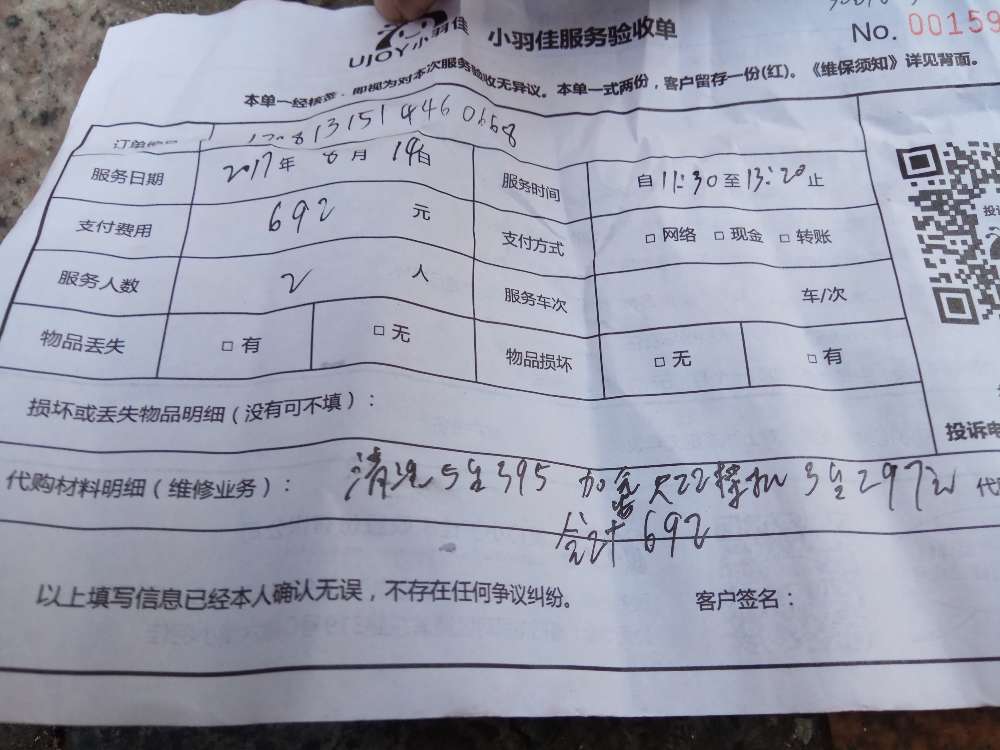 UJOY小羽佳 小羽佳服务验收单 No. 00159
本单一经核签，即视为对本次服务验收无异议。本单一式两份，客户留存一份(红)。《维保须知》详见背面。
订单 13151446 0668
服务日期 2017年 月 19日 服务时间 自 11:30 至 13:20 止
支付费用 692 元 支付方式 □ 网络 □ 现金 □ 转账
服务人数 2 人 服务车次 车/次
物品丢失 □ 有 □ 无 物品损坏 □ 无 □ 有
损坏或丢失物品明细（没有可不填）：
投诉电
代购材料明细（维修业务）： 清洗5台395 加 R22 3台297元 代
总计 692
以上填写信息已经本人确认无误，不存在任何争议纠纷。 客户签名：